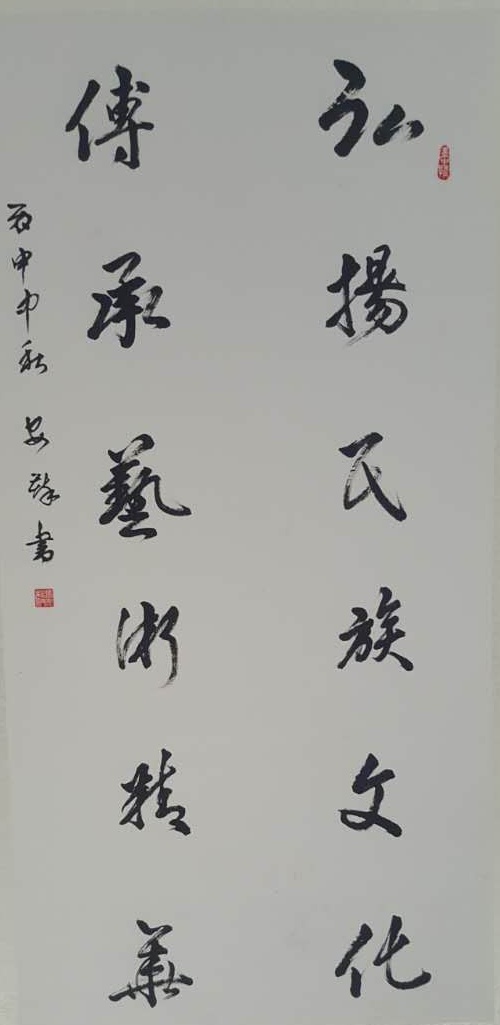 弘揚民族文化
傳承藝術精華
丙申中秋 安 書